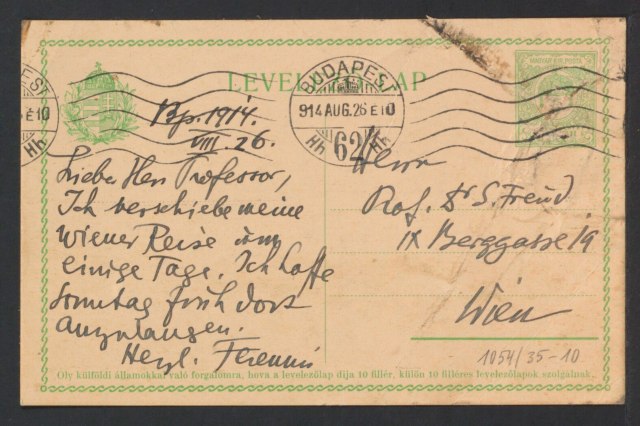 LEVELEZŐLAP
MAGYAR KIR. POSTA
BUDAPEST
914 AUG. 26 E 10
62
Bp. 1914.
VIII. 26.
Lieber Herr Professor,
Ich verschiebe meine
Wiener Reise um
einige Tage. Ich hoffe
Sonntag früh dort
anzulangen.
Herzl. Ferenczi
Herrn
Prof. Dr S. Freud
IX Berggasse 19
Wien
1054/35-10
Oly külföldi államokkal való forgalomra, hova a levelezőlap díja 10 fillér, külön 10 filléres levelezőlapok szolgálnak.